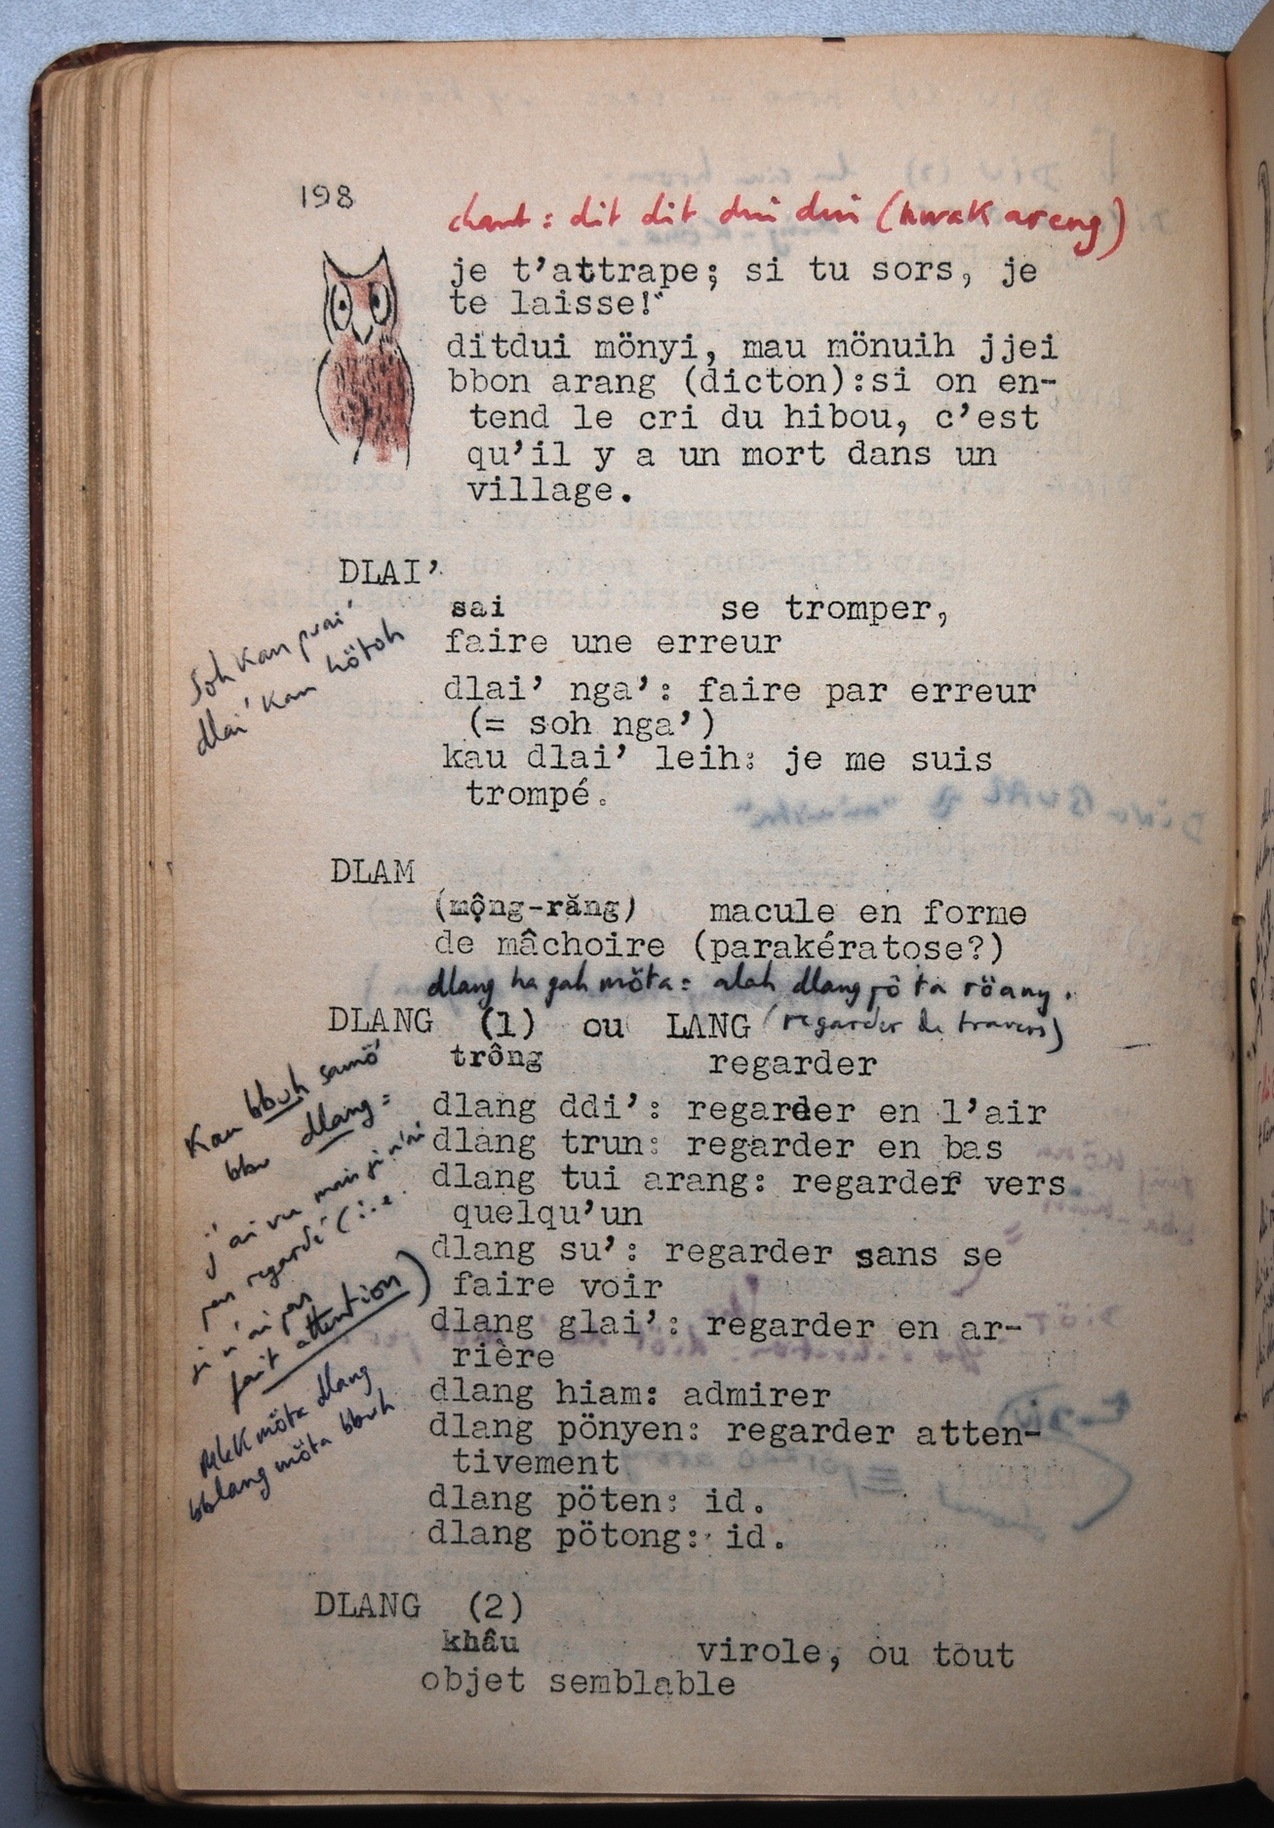 198
chant : dit dit dui dui (hwak areng)
je t'attrape; si tu sors, je
te laisse!"
ditdui mönyi, mau mönuih jjei
bbon arang (dicton):si on en-
tend le cri du hibou, c'est
qu'il y a un mort dans un
village.
DLAI'
sai se tromper,
faire une erreur
Soh kan prai'
dlai' kan hötoh
dlai' nga': faire par erreur
(= soh nga')
kau dlai' leih: je me suis
trompé.
DLAM
(mộng-răng) macule en forme
de mâchoire (parakératose?)
dlang ha gah möta = alah dlang pô ta röang.
DLANG (1) ou LANG (regarder de travers)
trông regarder
Kau bbuh samö'
bbu dlang =
j'ai vu mais je n'ai
pas regardé (i.e.
je n'ai pas
fait attention)
MleK möta dlang
bblang möta bbuh
dlang ddi': regarder en l'air
dlang trun: regarder en bas
dlang tui arang: regarder vers
quelqu'un
dlang su': regarder sans se
faire voir
dlang glai': regarder en ar-
rière
dlang hiam: admirer
dlang pönyen: regarder atten-
tivement
dlang pöten: id.
dlang pötong: id.
DLANG (2)
khâu virole, ou tout
objet semblable